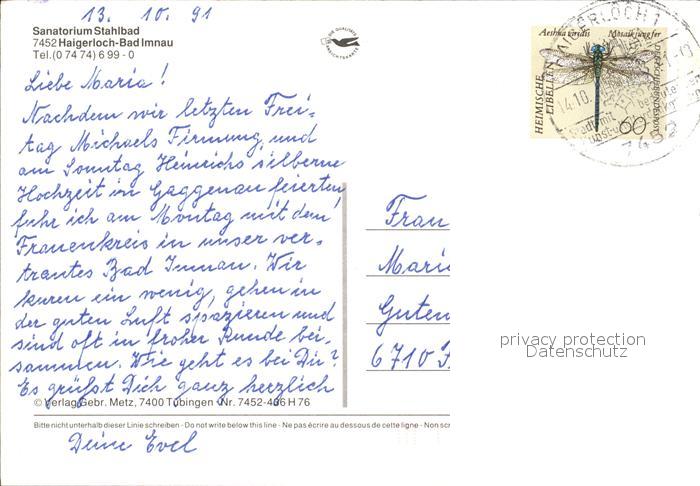 13. 10. 91
Sanatorium Stahlbad
7452 Haigerloch-Bad Imnau
Tel. (0 74 74) 6 99 - 0
Liebe Maria!
Nachdem wir letzten Frei-
tag Michaels Firmung, und
am Sonntag Heinrichs silberne
Hochzeit in Gaggenau feierten
fuhr ich am Montag mit dem
Frauenkreis in unser ver-
trautes Bad Imnau. Wir
kuren ein wenig, gehen in
der guten Luft spazieren und
sind oft in froher Runde bei-
sammen. Wie geht es bei Dir?
Es grüßt Dich ganz herzlich
Deine
© Verlag Gebr. Metz, 7400 Tübingen · Nr. 7452-406 H 76
Bitte nicht unterhalb dieser Linie schreiben - Do not write below this line - Ne pas écrire au dessous de cette ligne - Non
Aeshna viridis Mosaikjungfer
HEIMISCHE
LIBELLEN
DEUTSCHE BUNDESPOST
60
HAIGERLOCH 1
14.10.
7452
Frau
Guten
6710
privacy protection
Datenschutz